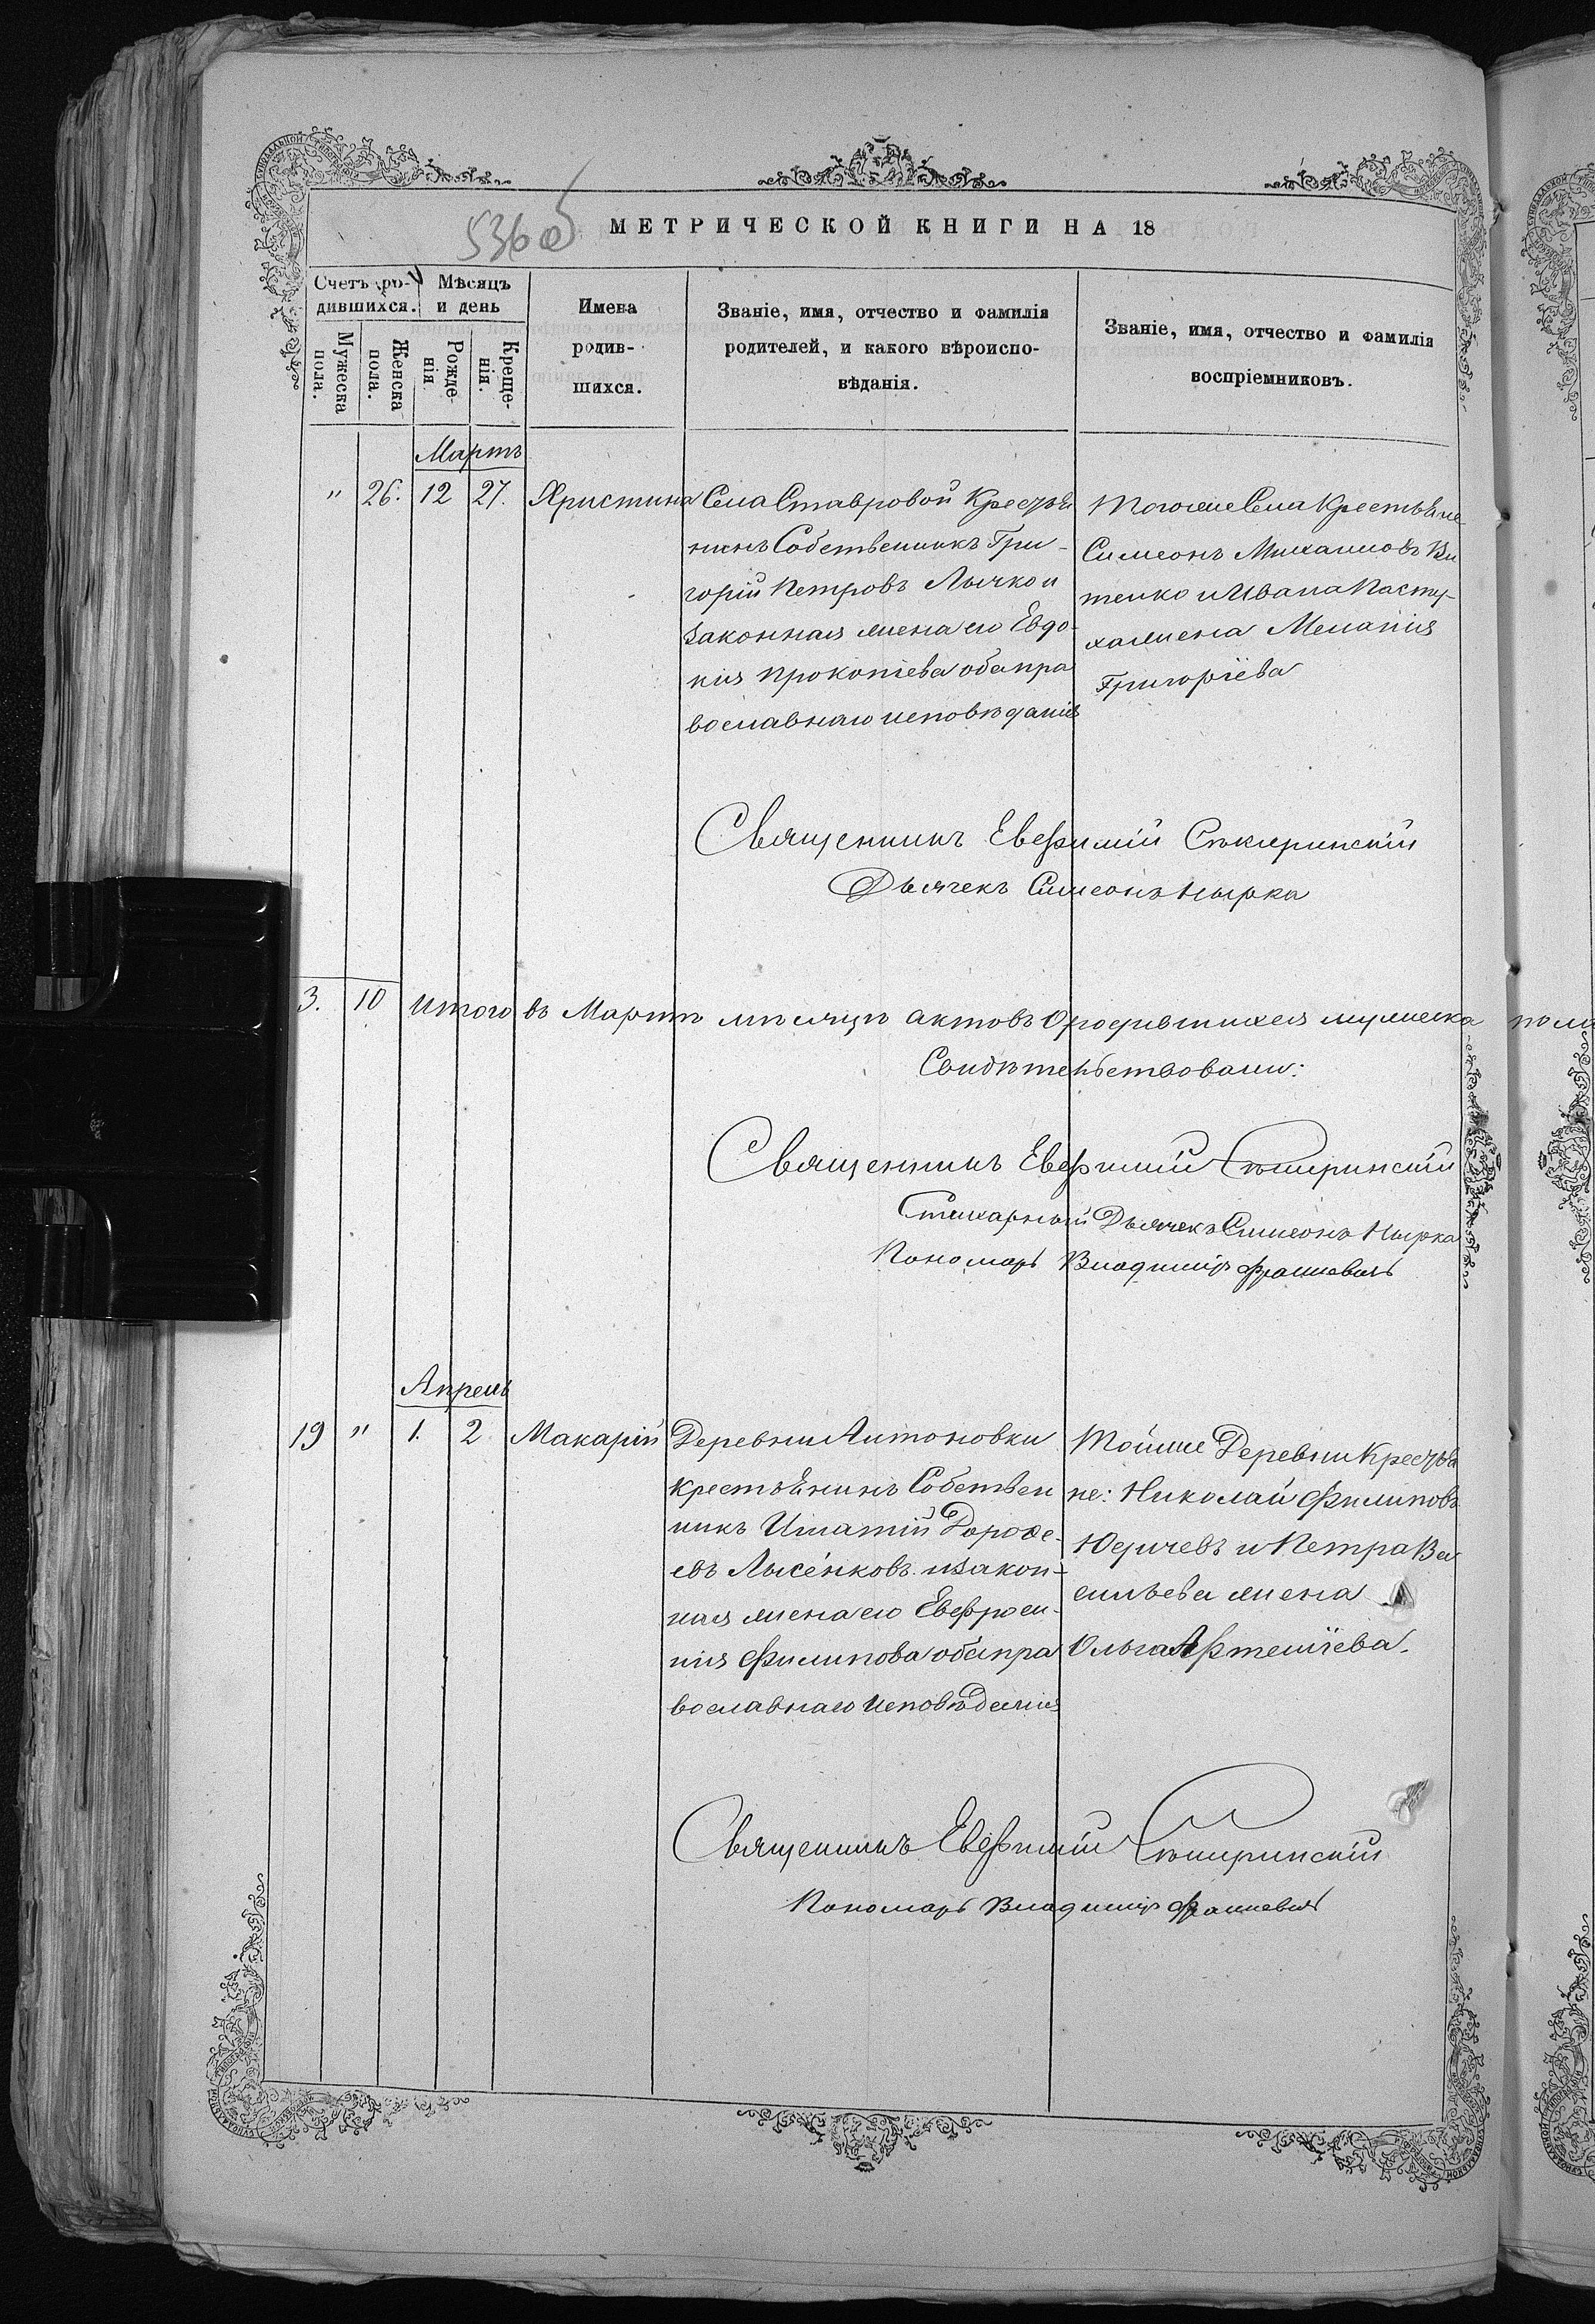 536 об
МЕТРИЧЕСКОЙ КНИГИ НА 18
Счетъ родившихся.
Мѣсяцъ и день
Мужеска пола.
Женска пола.
Рожденія
Крещенія.
Имена
родив-
шихся.
Званіе, имя, отчество и фамилія
родителей, и какого вѣроиспо-
вѣданія.
Званіе, имя, отчество и фамилія
воспріемниковъ.
Мартъ
" 26. 12 27. Христина
Села Ставровой Крестья
нинъ Собственникъ Гри-
горій Петровъ Лычко и
законная жена его Евдо-
кія Прокопіева оба пра
вославнаго исповѣданія
Тогоже Села Крестьяне
Симеонъ Михаиловъ Ви
тенко и Ивана Пасту-
ха жена Меланія
Григоріева
Священникъ Евфимій Сѣкиринскій
Дьячекъ Симеонъ Нырка
3. 10 Итого въ Мартѣ мѣсяцѣ актовъ о родившихся мужеска пола
Свидѣтельствовали:
Священникъ Евфимій Сѣкиринскій
Стихарный Дьячекъ Симеонъ Нырка
Пономарь Владиміръ
Апрель
19 " 1. 2 Макарій
Деревни Антоновки
крестьянинъ Собствен
никъ Игнатій Дорофе-
евъ Лысенковъ и закон-
ная жена его Евфроси-
нія Филипова оба пра
вославнаго исповѣданія
Тойже Деревни Крестья
не: Николай Филиповъ
Юдичевъ и Петра Ва
сильева жена
Ольга Афтеніева.
Священникъ Евфимій Сѣкиринскій
Пономарь Владиміръ